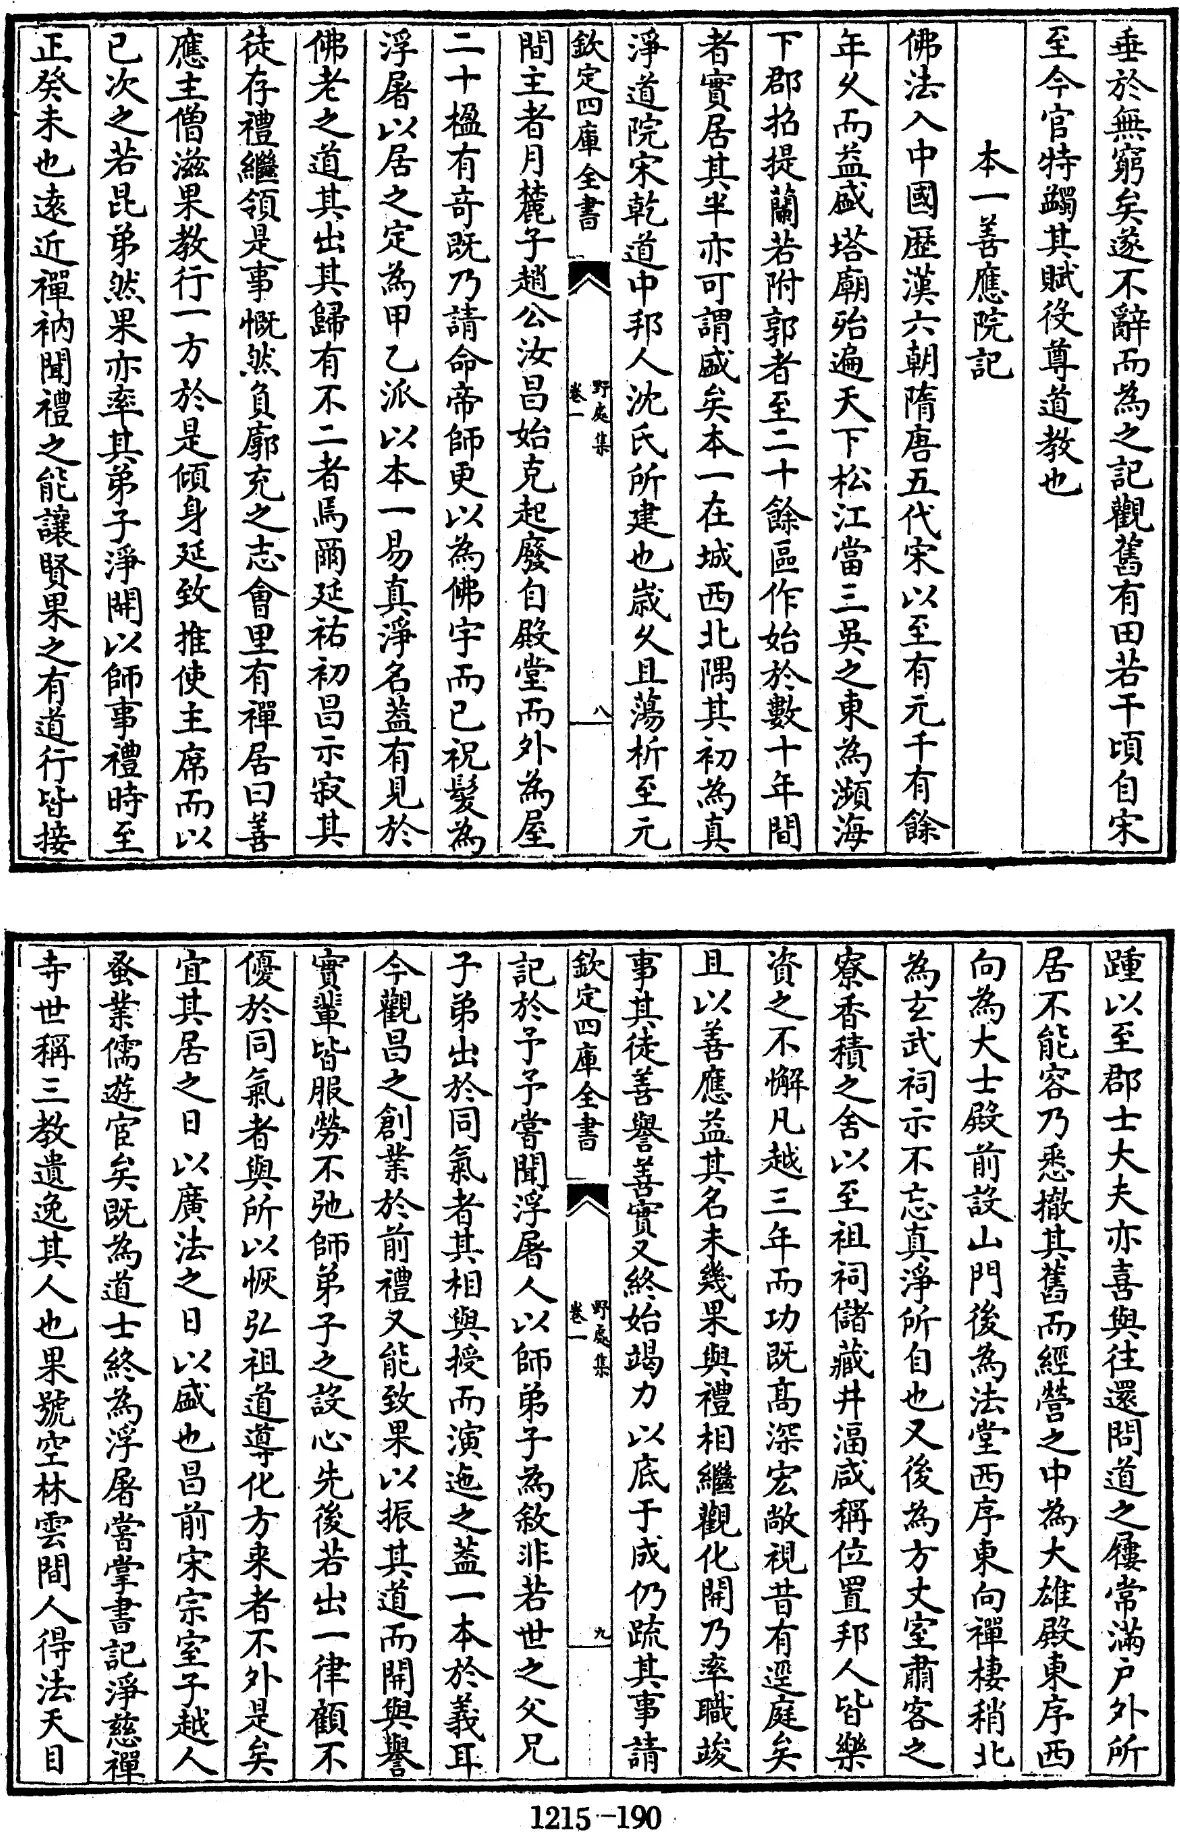 垂於無窮矣遂不辭而為之記觀舊有田若干頃自宋
至今官特蠲其賦役尊道教也
本一善應院記
佛法入中國歷漢六朝隋唐五代宋以至有元千有餘
年久而益盛塔廟殆遍天下松江當三吳之東為瀕海
下郡招提蘭若附郭者至二十餘區作始於數十年間
者實居其半亦可謂盛矣本一在城西北隅其初為真
淨道院宋乾道中邦人沈氏所建也歲久且蕩析至元
欽定四庫全書
野處集
卷一
八
間主者月麓子趙公汝昌始克起廢自殿堂而外為屋
二十楹有奇既乃請命帝師更以為佛宇而已祝髮為
浮屠以居之定為甲乙派以本一易真淨名葢有見於
佛老之道其出其歸有不二者焉爾延祐初昌示寂其
徒存禮繼領是事慨然負廓充之志會里有禪居曰善
應主僧滋果教行一方於是傾身延致推使主席而以
已次之若昆弟然果亦率其弟子淨開以師事禮時至
正癸未也遠近禪衲聞禮之能讓賢果之有道行皆接
踵以至郡士大夫亦喜與往還問道之屨常滿户外所
居不能容乃悉撤其舊而經營之中為大雄殿東序西
向為大士殿前設山門後為法堂西序東向禪棲稍北
為玄武祠示不忘真淨所自也又後為方丈室肅客之
寮香積之舍以至祖祠儲藏井湢咸稱位置邦人皆樂
資之不懈凡越三年而功既高深宏敞視昔有逕庭矣
且以善應益其名未幾果與禮相繼觀化開乃率職竣
事其徒善譽善實又終始竭力以底于成仍疏其事請
欽定四庫全書
野處集
卷一
九
記於予予嘗聞浮屠人以師弟子為敘非若世之父兄
子弟出於同氣者其相與授而演迤之葢一本於義耳
今觀昌之創業於前禮又能致果以振其道而開與譽
實輩皆服勞不弛師弟子之設心先後若出一律顧不
優於同氣者與所以恢弘祖道導化方來者不外是矣
宜其居之日以廣法之日以盛也昌前宋宗室子越人
蚤業儒遊宦矣既為道士終為浮屠嘗掌書記淨慈禪
寺世稱三教遺逸其人也果號空林雲間人得法天目
1215-190